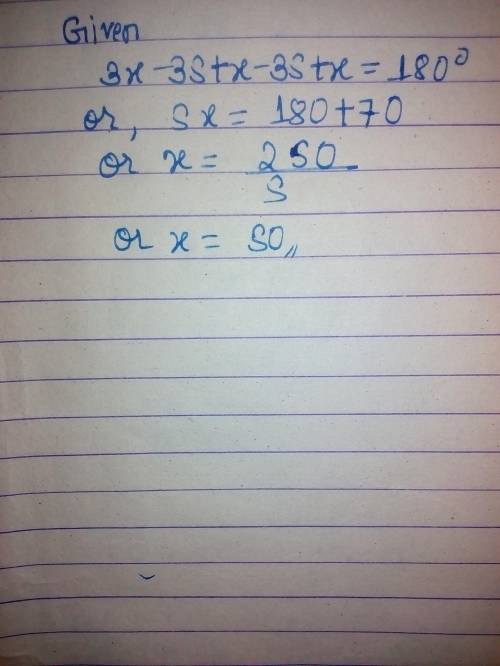 Given
3x - 35 + x - 35 + x = 180°
or, 5x = 180 + 70
or x = 250
5
or x = 50,,